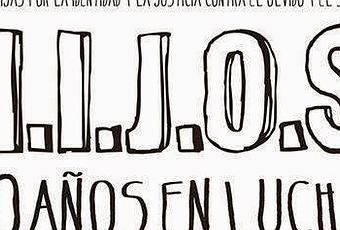 IJAS POR LA IDENTIDAD Y LA JUSTICIA CONTRA EL OLVIDO Y EL
H.I.J.O.S
0 AÑOS EN LUCH